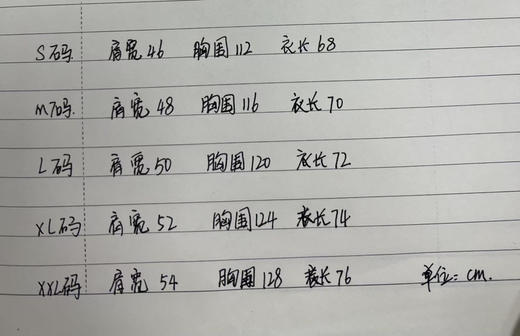 S码 肩宽46 胸围112 衣长68
M码 肩宽48 胸围116 衣长70
L码 肩宽50 胸围120 衣长72
XL码 肩宽52 胸围124 衣长74
XXL码 肩宽54 胸围128 衣长76 单位:cm.